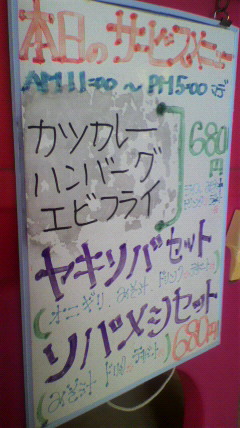 本日のサービスメニュー
AM 11:00 ~ PM 5:00
カツカレー
ハンバーグ
エビフライ
680円
ヤキソバセット
(オニギリ、みそ汁、
ソバメシセット
(みそ汁、 680円